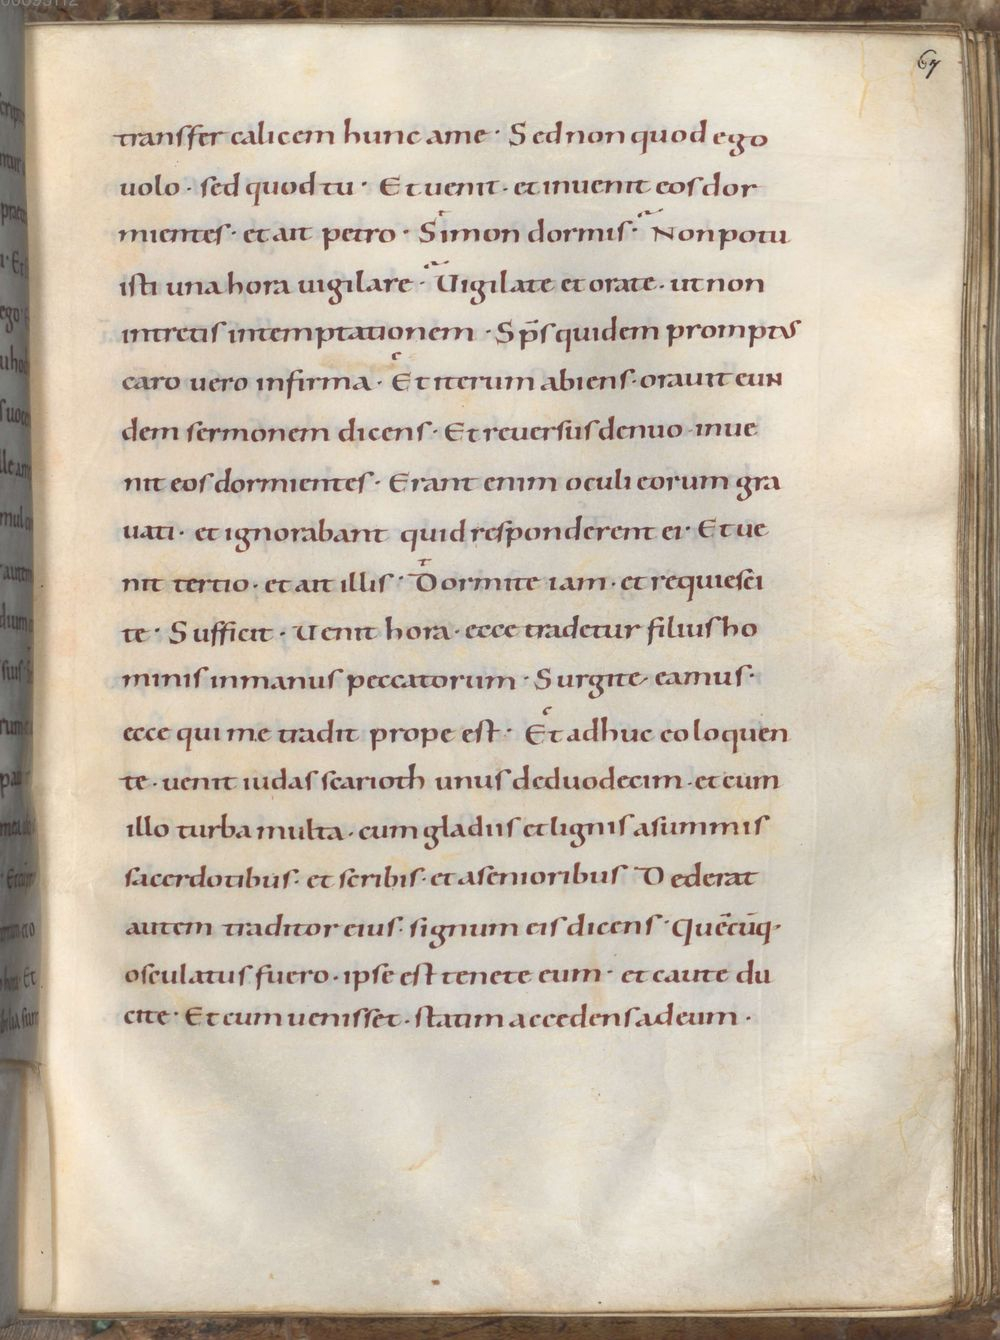 67
transfer calicem hunc ame · Sed non quod ego
uolo · sed quod tu · Et uenit · et inuenit eos dor
mientes · et ait petro · Simon dormis · Non potu
isti una hora uigilare · Uigilate et orate · ut non
intretis intemptationem · Sp̅s quidem promptus
caro uero infirma · Et iterum abiens · orauit eun
dem sermonem dicens · Et reuersus denuo inue
nit eos dormientes · Erant enim oculi eorum gra
uati · et ignorabant quid responderent ei · Et ue
nit tertio · et ait illis · Dormite iam · et requiesci
te · Sufficit · Uenit hora · ecce tradetur filius ho
minis inmanus peccatorum · Surgite eamus ·
ecce qui me tradit prope est · Et adhuc eo loquen
te · uenit iudas scarioth unus deduodecim · et cum
illo turba multa · cum gladiis et lignis asummis
sacerdotibus · et scribis · et asenioribus Dederat
autem traditor eius · signum eis dicens · Quēcūq·
osculatus fuero · ipse est tenete eum · et caute du
cite · Et cum uenisset · statim accedens adeum ·